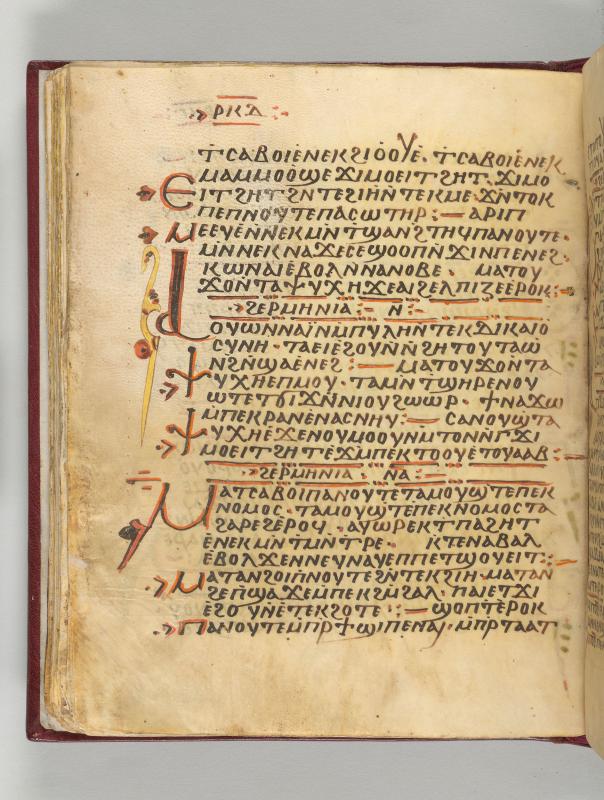 ⲣⲕⲇ
ⲧ̄ⲥⲁⲃⲟⲓⲉⲛⲉⲕϩⲓⲟⲟⲩⲉ· ⲧ̄ⲥⲁⲃⲟⲓⲉⲛⲉⲕ
ⲙⲁⲙⲙⲟⲟϣⲉ ϫⲓⲙⲟⲉⲓⲧϩⲏⲧ· ϫⲓⲙⲟ
ⲉⲓⲧϩⲏⲧϩⲛⲧⲉϩⲓⲏⲛⲧⲉⲕⲙⲉ· ϫⲛⲧⲟⲕ
ⲡⲉⲡⲛⲟⲩⲧⲉⲡⲁⲥⲱⲧⲏⲣ :— ⲁⲣⲓⲡ
ⲙⲉⲉⲩⲉⲛⲛⲉⲕⲙⲛⲧϣⲁⲛϩⲧⲏϥⲡⲁⲛⲟⲩⲧⲉ·
ⲙⲛⲛⲉⲕⲛⲁϫⲉⲥⲉϣⲟⲟⲡⲛϫⲓⲛⲡⲉⲛⲉϩ·
ⲕⲱⲛⲁⲓⲉⲃⲟⲗⲛⲛⲁⲛⲟⲃⲉ · ⲙⲁⲧⲟⲩ
ϫⲟⲛⲧⲁⲯⲩⲭⲏϫⲉⲁⲓϩⲉⲗⲡⲓⲍⲉⲉⲣⲟⲕ :—
ϩⲉⲣⲙⲏⲛⲓⲁ :— ⲛ̄ :—
ⲁⲟⲩⲱⲛⲛⲁⲓⲛⲙⲡⲩⲗⲏⲛⲧⲉⲕⲇⲓⲕⲁⲓⲟ
ⲥⲩⲛⲏ · ⲧⲁⲉⲓⲉϩⲟⲩⲛⲛϩⲏⲧⲟⲩⲧⲁⲱ
ⲛϩⲛϣⲁⲉⲛⲉϩ :— ⲙⲁⲧⲟⲩϫⲟⲛⲧⲁ
ⲯⲩⲭⲏⲉⲡⲙⲟⲩ · ⲧⲁⲙⲛⲧϣⲏⲣⲉⲛⲟⲩ
ⲱⲧⲉⲧϭⲓϫⲛⲛⲓⲟⲩϩⲱⲱⲣ · ϯⲛⲁϫⲱ
ⲙⲡⲉⲕⲣⲁⲛⲉⲛⲁⲥⲛⲏⲩ :— ⲥⲁⲛⲟⲩϣⲧⲁ
ⲯⲩⲭⲏⲉϫⲉⲛⲟⲩⲙⲟⲟⲩⲛⲙⲧⲟⲛⲛⲅϫⲓ
ⲙⲟⲉⲓⲧϩⲏⲧⲉϫⲙⲡⲉⲕⲧⲟⲟⲩⲉⲧⲟⲩⲁⲁⲃ :—
ϩⲉⲣⲙⲏⲛⲓⲁ · ⲛ̄ⲁ̄ :—
ⲙⲁⲧⲥⲁⲃⲟⲓⲡⲁⲛⲟⲩⲧⲉⲧⲁⲙⲟⲩϣⲧⲉⲡⲉⲕ
ⲛⲟⲙⲟⲥ · ⲧⲁⲙⲟⲩϣⲧⲉⲡⲉⲕⲛⲟⲙⲟⲥⲧⲁ
ϩⲁⲣⲉϩⲉⲣⲟϥ · ⲁⲩⲱⲣⲉⲕⲧⲡⲁϩⲏⲧ
ⲉⲛⲉⲕⲙⲛⲧⲙⲛⲧⲣⲉ · ⲕⲧⲉⲛⲁⲃⲁⲗ
ⲉⲃⲟⲗϫⲉⲛⲛⲉⲩⲛⲁⲩⲉⲡⲡⲉⲧϣⲟⲩⲉⲓⲧ :
ⲙⲁⲧⲁⲛϩⲟⲓⲡⲛⲟⲩⲧⲉϩⲛⲧⲉⲕϩⲓⲏ · ⲙⲁⲧⲁⲛ
ϩⲉⲡϣⲁϫⲉⲙⲡⲉⲕϩⲙϩⲁⲗ · ⲡⲁⲓⲉⲧϫⲓ
ⲉϩⲟⲩⲛⲉⲧⲉⲕϩⲟⲧⲉ :— ϣⲟⲡⲧⲉⲣⲟⲕ
ⲡⲁⲛⲟⲩⲧⲉⲙⲡⲣϯϣⲓⲡⲉⲛⲁⲓ · ⲙⲡⲣⲧⲁⲁⲧ